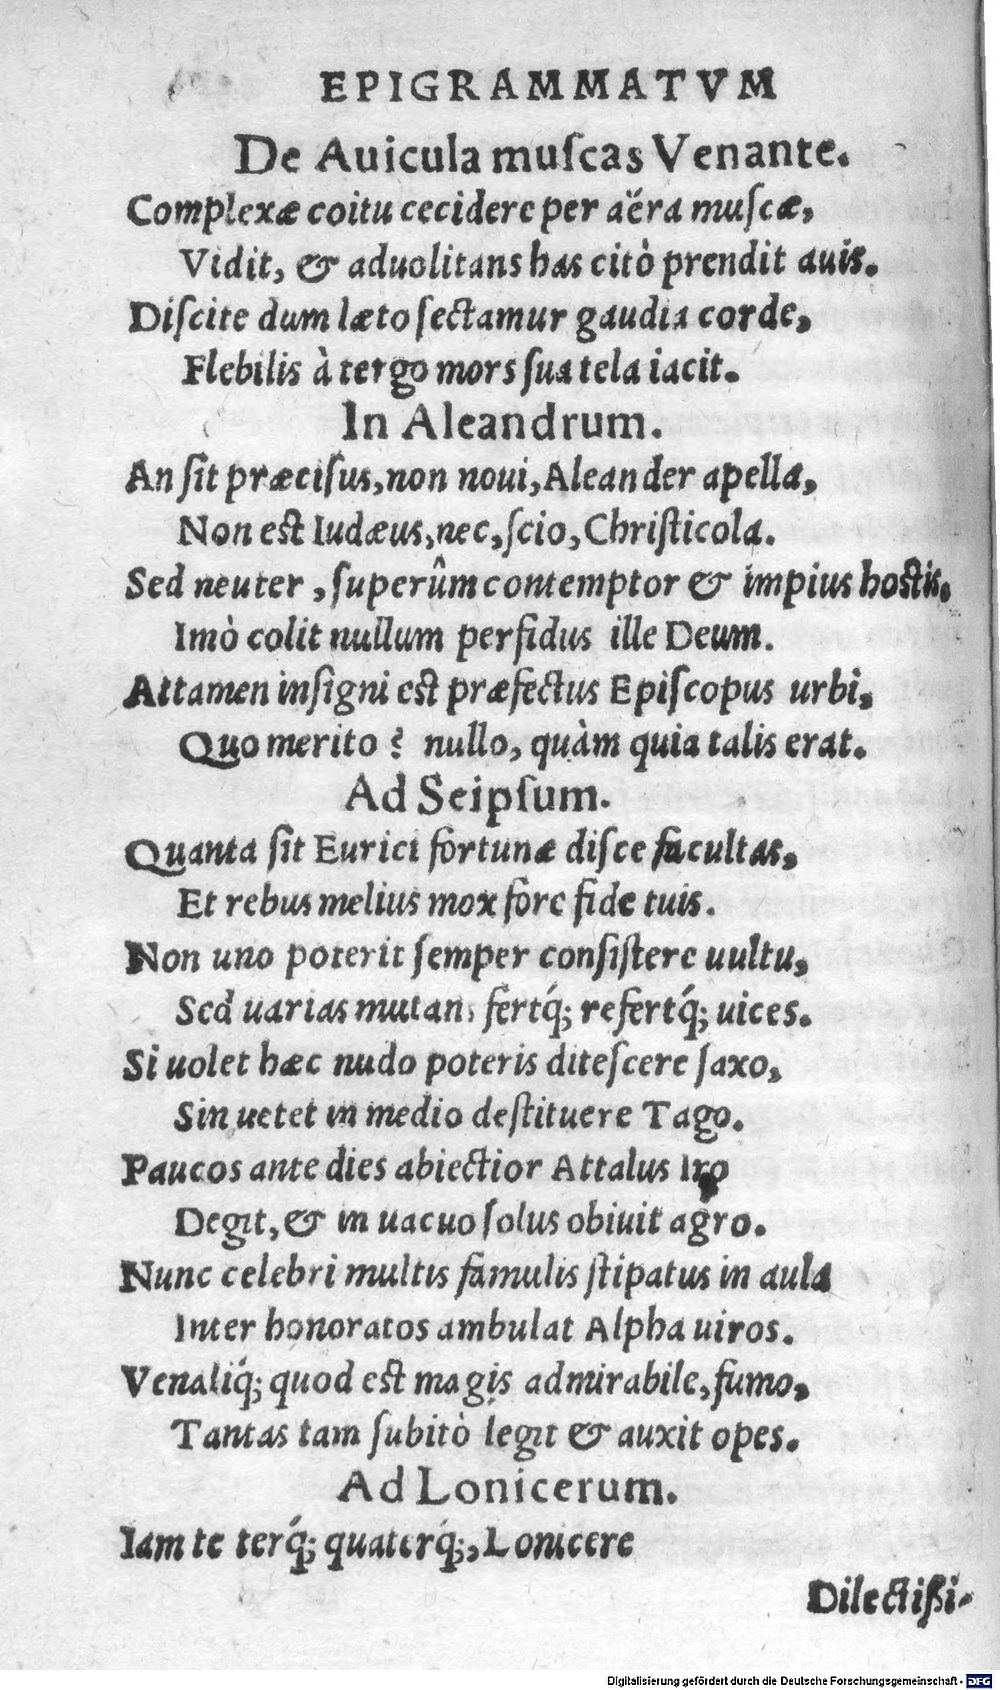 EPIGRAMMATVM
De Auicula muſcas Venante.
Complexæ coitu cecidere per aëra muſcæ,
Vidit, & aduolitans has citò prendit auis.
Diſcite dum læto ſectamur gaudia corde,
Flebilis à tergo mors ſua tela iacit.
In Aleandrum.
An ſit præciſus, non noui, Aleander apella,
Non est Iudæus, nec, ſcio, Chriſticola.
Sed neuter, ſuperûm contemptor & impius hostis.
Imò colit nullum perfidus ille Deum.
Attamen inſigni est præfectus Epiſcopus urbi,
Quo merito? nullo, quàm quia talis erat.
Ad Seipſum.
Quanta ſit Eurici fortunæ diſce facultas,
Et rebus melius mox fore fide tuis.
Non uno poterit ſemper conſiſtere uultu,
Sed uarias mutans fertq́; refertq́; uices.
Si uolet hæc nudo poteris diteſcere ſaxo,
Sin uetet in medio deſtituere Tago.
Paucos ante dies abiectior Attalus Iro
Degit, & in uacuo ſolus obiuit agro.
Nunc celebri multis famulis ſtipatus in aula
Inter honoratos ambulat Alpha uiros.
Venaliq́; quod est magis admirabile, fumo,
Tantas tam ſubitò legit & auxit opes.
Ad Lonicerum.
Iam te terq́; quaterq́;, Lonicere
Dilectißi-
Digitalisierung gefördert durch die Deutsche Forschungsgemeinschaft - DFG